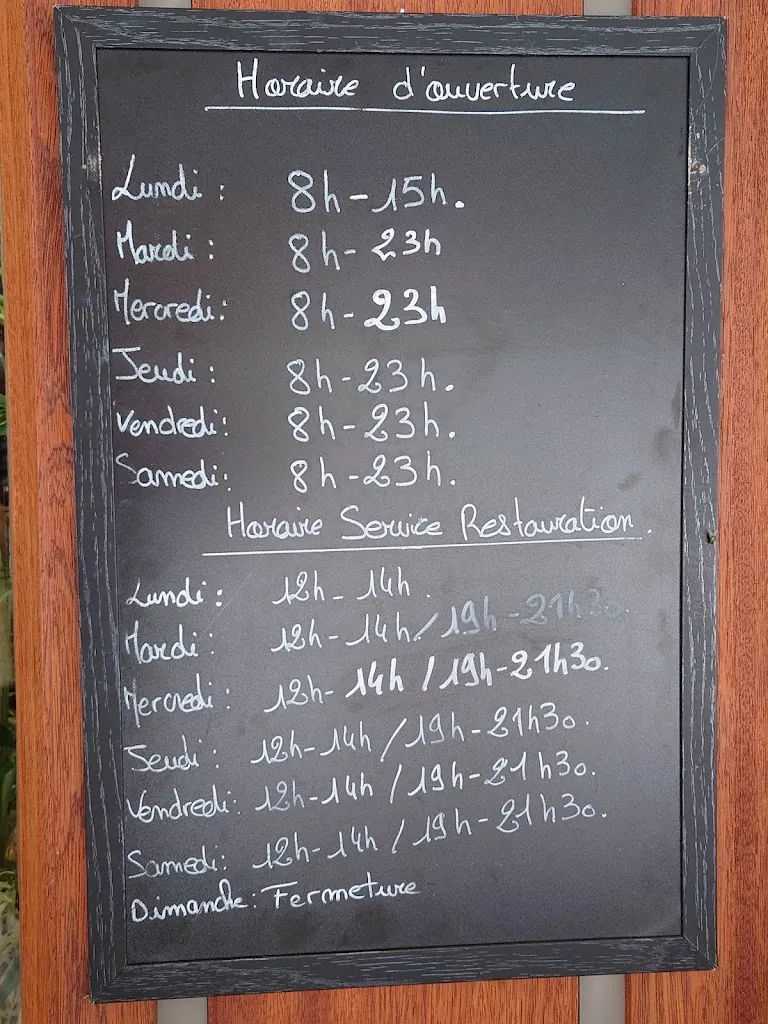 Horaire d'ouverture
Lundi : 8h-15h.
Mardi : 8h-23h
Mercredi: 8h-23h
Jeudi : 8h-23h.
Vendredi: 8h-23h.
Samedi: 8h-23h.
Horaire Service Restauration.
Lundi : 12h-14h.
Mardi : 12h-14h/19h-21h30.
Mercredi : 12h-14h/19h-21h30.
Jeudi : 12h-14h/19h-21h30.
Vendredi: 12h-14h/19h-21h30.
Samedi: 12h-14h/19h-21h30.
Dimanche: Fermeture